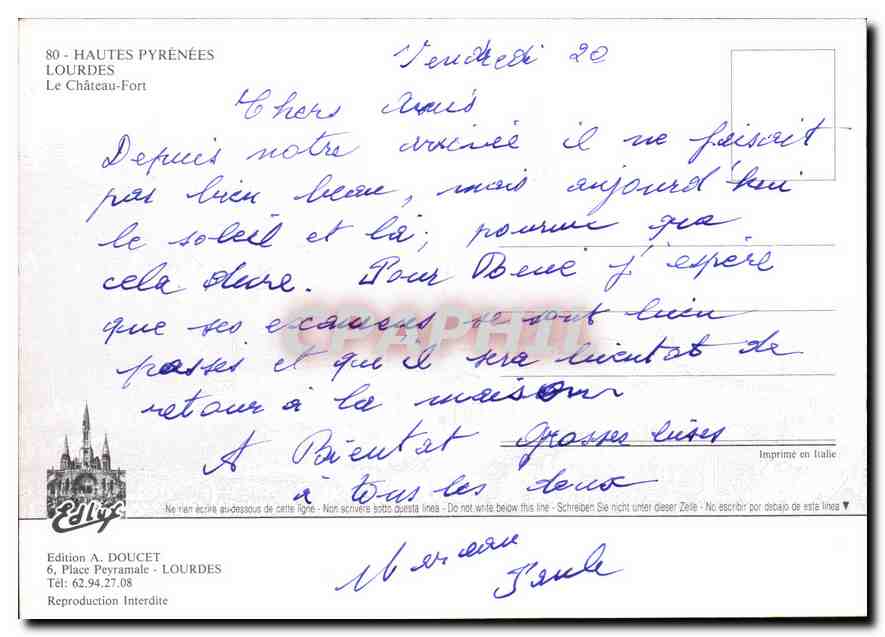 80 - HAUTES PYRÉNÉES
LOURDES
Le Château-Fort
Vendredi 20
Chers Amis
Depuis notre arrivée il ne faisait
pas bien beau, mais aujourd'hui
le soleil et là; pourvu que
cela dure. Pour René j'espère
que ses examens se sont bien
passés et qu'il sera bientot de
retour à la maison
A Bientat grosses bises
à tous les deux
Imprimé en Italie
Edluf
Ne rien écrire au-dessous de cette ligne - Non scrivere sotto questa linea - Do not write below this line - Schreiben Sie nicht unter dieser Zeile - No escribir por debajo de esta linea ▼
Edition A. DOUCET
6, Place Peyramale - LOURDES
Tél: 62.94.27.08
Reproduction Interdite
Paule
CPAPHIL